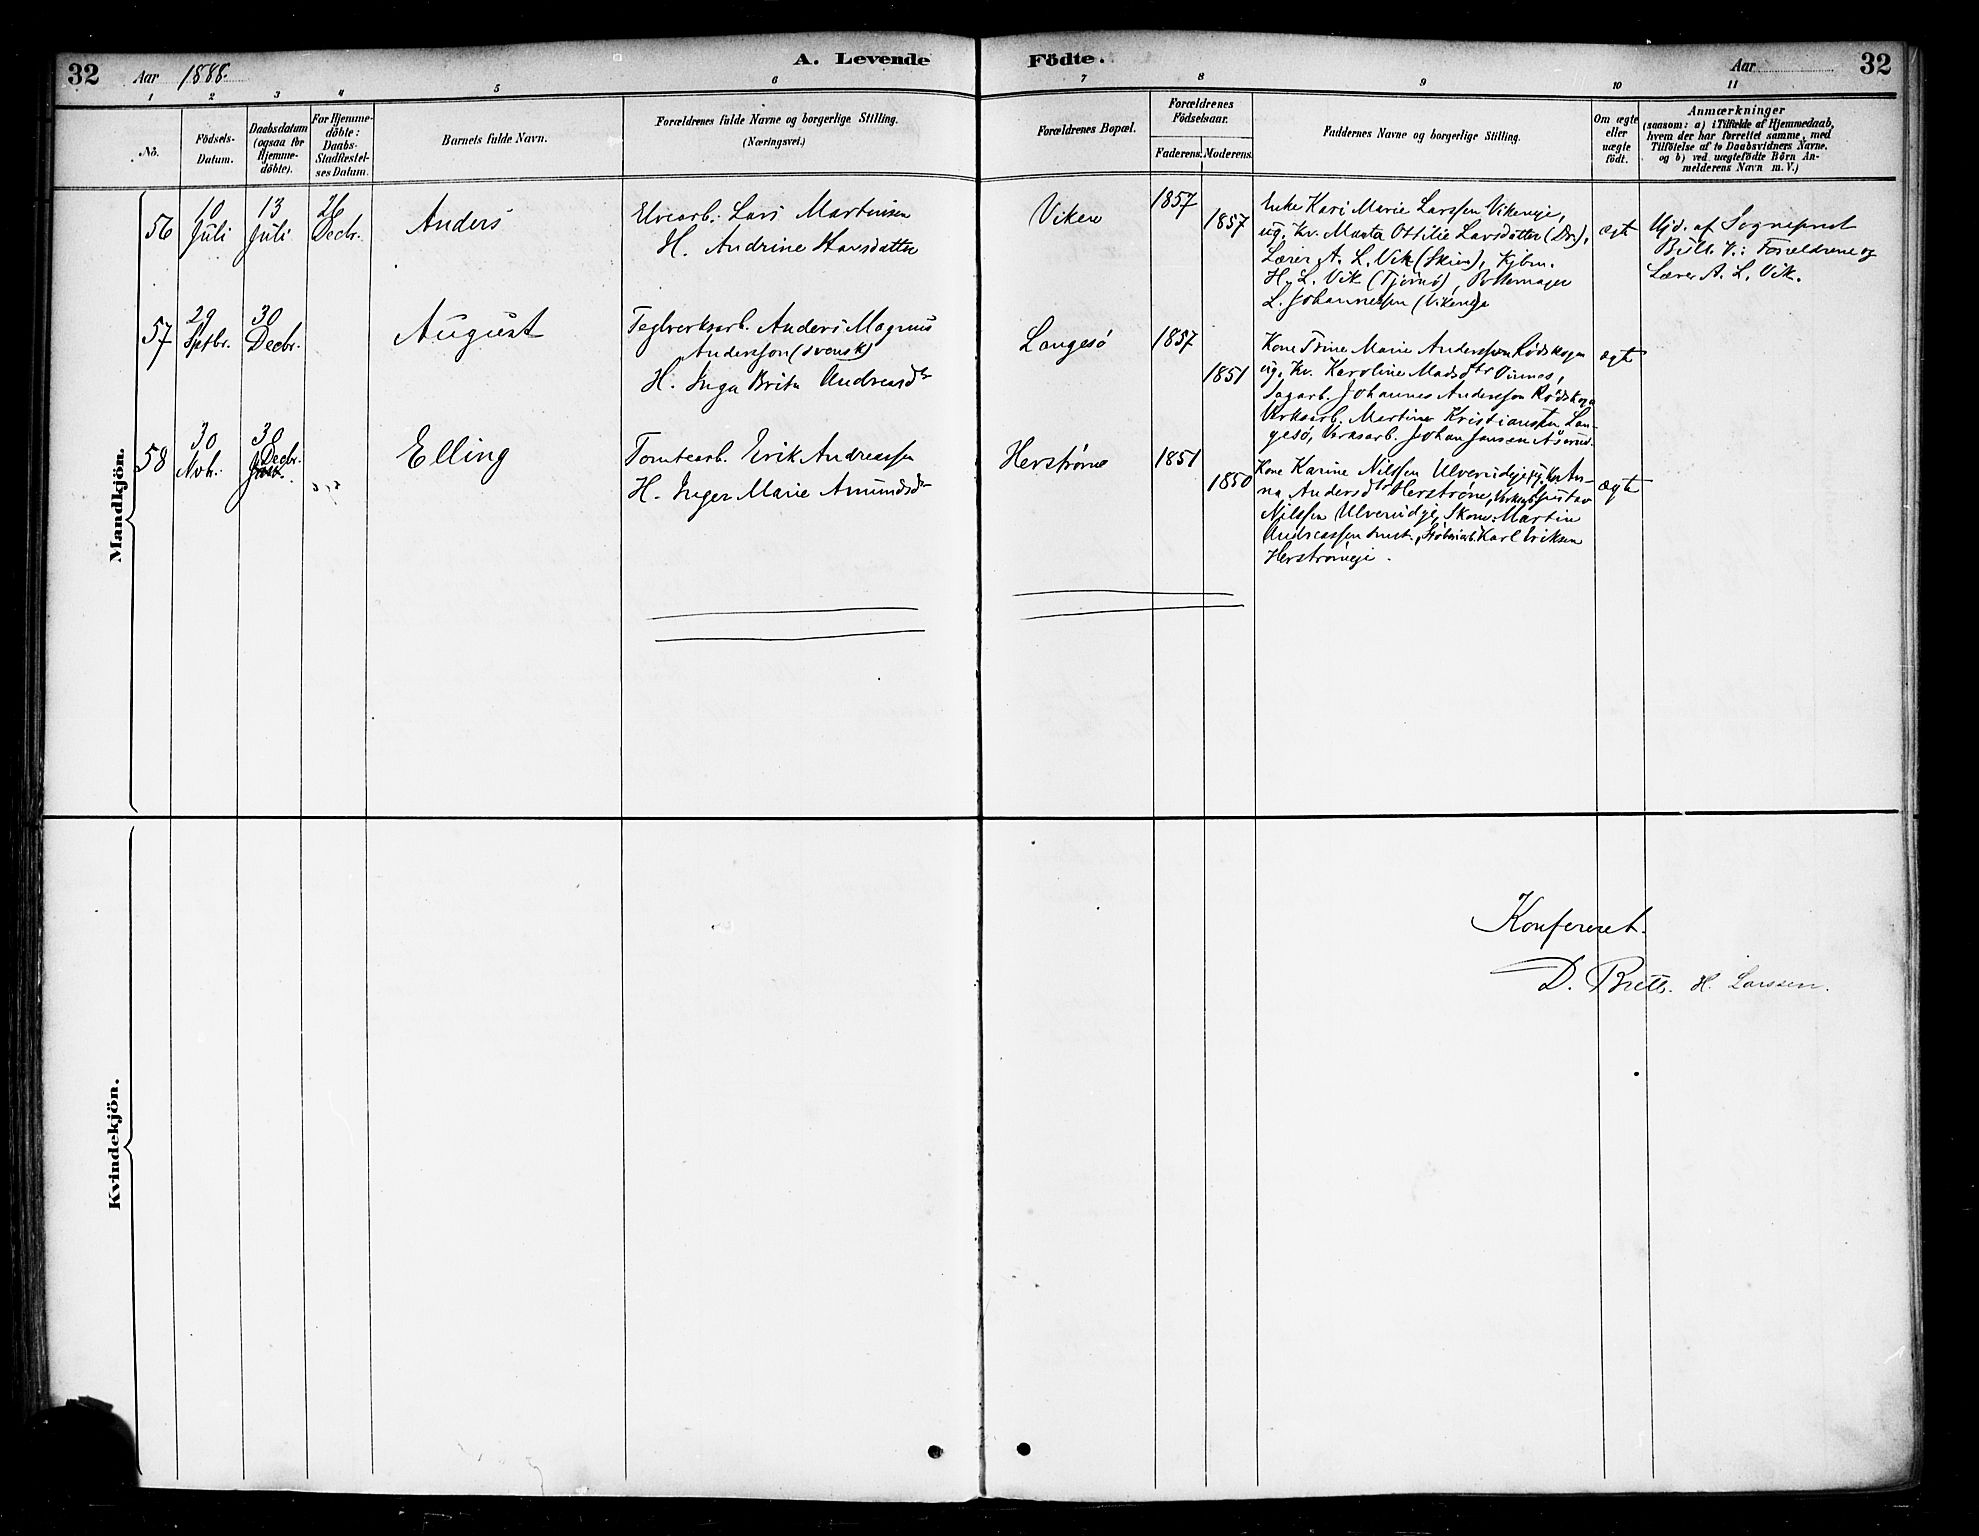 32
Aar 1888.
A. Levende Födte.
Aar
32
1 2 3 4 5 6 7 8 9 10 11
No.
Födsels-Datum.
Daabsdatum (ogsaa for Hjemme-döbte).
For Hjemme-döbte: Daabs-Stadfæstel-ses Datum.
Barnets fulde Navn.
Forældrenes fulde Navne og borgerlige Stilling.
(Næringsvei.)
Forældrenes Bopæl.
Forældrenes Födselsaar.
Faderens. Moderens.
Faddernes Navne og borgerlige Stilling.
Om ægte eller uægte födt.
Anmærkninger
(saasom: a) i Tilfælde af Hjemmedaab,
hvem der har forrettet samme, med
Tilföielse af to Daabsvidners Navne,
og b) ved uægtefödte Börn An-
melderens Navn m. V.)
Mandkjön.
56
10 Juli
13 Juli
26 Decbr.
Anders
Elvearb. Lars Martinsen
H. Andrine Hansdatter
Viken
1857
1857
Enke Kari Marie Larssen Vikeneje,
ug. Kv. Marta Ottilie Larsdatter (Dr.),
Lærer A. L. Vik (Skien), Kjbm.
H. L. Vik (Tjømø), Pottemager
L. Johannessen (Vikeneje
ægt
Hjd. af Sogneprest
Bull. V.: Forældrene og
Lærer A. L. Vik.
57
29 Septbr.
30 Decbr.
August
Teglverksarb. Anders Magnus
Andersson (svensk)
H. Inga Brita Andreasdr
Langesø
1857
1851
Kone Trine Marie Anderssen Rødskogen
ug. Kv. Karoline Madsdtr Vinnes,
Sagarb. Johannes Andersson Rødskogen
Verksarb. Martin Kristiansen Lan-
gesø, Verksarb. Johan Jansen Åserud.
ægte
58
30 Novb.
30 Decbr.
Elling
Tomtearb. Erik Andreassen
H. Inger Marie Amundsdr
Herstrøm
1851
1850
Kone Karine Nilssen Ulverudeje, ug. Kv. An-
na Andersdtr Herstrøm, Verksarb. Gustav
Nilssen Ulverudeje, Skom. Martin
Andreassen smst., Støberiarb. Karl Eriksen
Herstrømeje.
ægte
Kvindekjön.
Konfereret.
D. Bull. H. Larssen.